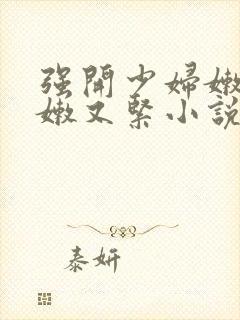 强開少婦嫩
嫩又緊小說
泰妍